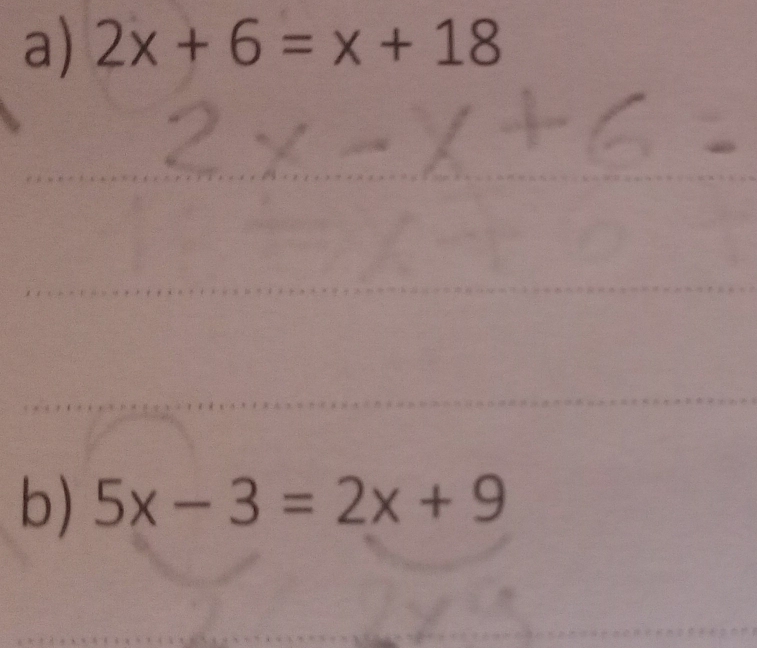 a) 2x + 6 = x + 18
2x - x + 6 =
b) 5x – 3 = 2x + 9